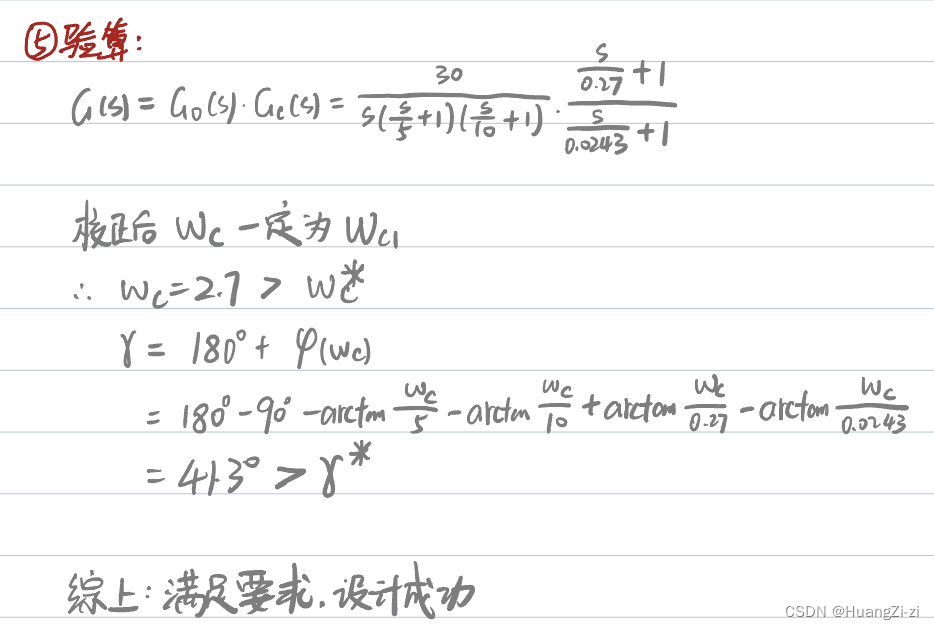 ⑤验算:
G(s) = G₀(s)·Gc(s) = 30/(s(s/5+1)(s/10+1)) · (s/0.27+1)/(s/0.0243+1)
校正后 Wc 一定为 Wc1
∴ Wc=2.7 > Wc*
γ = 180° + φ(Wc)
= 180° - 90° - arctan Wc/5 - arctan Wc/10 + arctan Wc/0.27 - arctan Wc/0.0243
= 41.3° > γ*
综上: 满足要求.设计成功
CSDN @HuangZi-zi